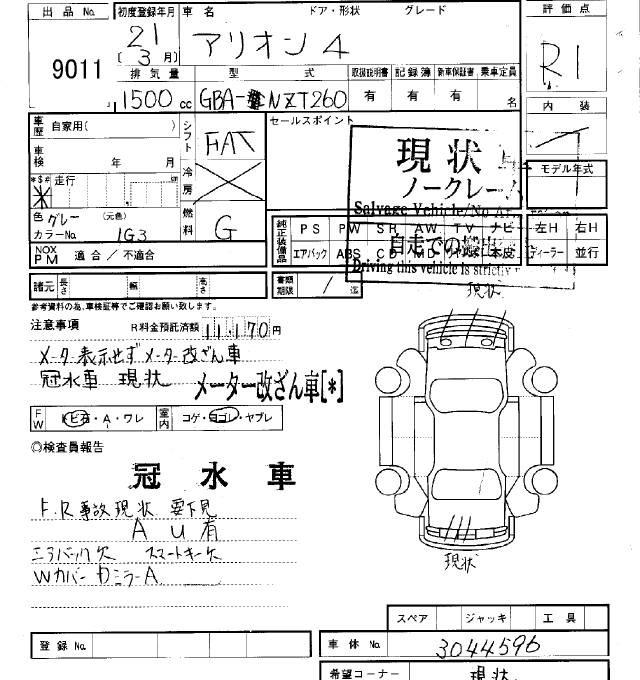 出品 No. 初度登録年月 車名 ドア・形状 グレード 評価点
9011 21 [3月] アリオン 4 R1
排気量 型式 取扱説明書 記録簿 新車保証書 乗車定員
1500cc GBA- NZT260 有 有 有 名 内装
車歴 自家用( ) シフト FAT セールスポイント
車検 年 月 冷房 現状 モデル年式
*$# 走行 ノークレーム
* Salvage Vehicle/No
色 グレー (元色) 燃料 G 純正装備品 PS PW SR AW TV ナビ 左H 右H
カラーNo. 1G3 エアバック ABS CD MD 本皮 ディーラー 並行
自走での搬出
NOX PM 適合/不適合 Driving this vehicle is strictly
諸元 長さ 幅 高さ 書類期限 / 迄 現状
参考資料の為、車検証等でご確認お願い致します。
注意事項 R料金預託済額 11,170円
メーター表示せずメーター改ざん車
冠水車 現状 メーター改ざん車[*]
FW トビ石・A・ワレ 室内 コゲ・ヨゴレ・ヤブレ
◎検査員報告
冠水車
F.R事故現状 要下見
AU有
エアバック欠 スマートキー欠
Wカバー カミラーA 現状
スペア ジャッキ 工具
登録 No. 車体 No. 3044596
希望コーナー 現状